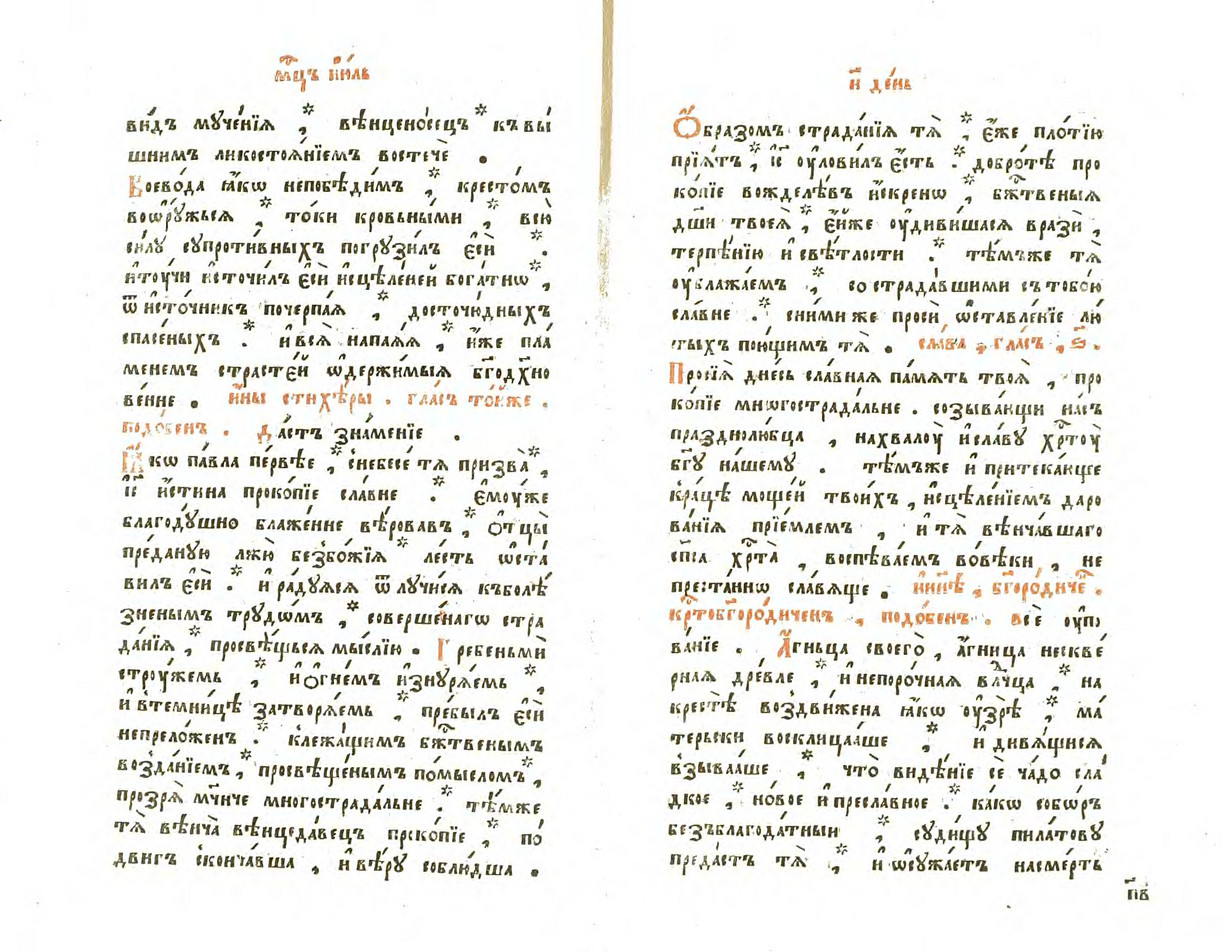 мц҃ъ і҆ю́ль
ви́дъ мꙋче́нїѧ , * вѣнцено́сецъ * къ вы́
шнимъ ликостоѧ́нїемъ востечѐ .
Воево́да ꙗ҆́кѡ непобѣди́мъ , * кресто́мъ
воѡрꙋ́жьсѧ , * то́ки кро́вьными , * всю̀
си́лꙋ сꙋпроти́вныхъ погрꙋзи́лъ є҆сѝ . *
и҆ то́учи и҆сточи́лъ є҆сѝ и҆сцѣле́ней бога́тнѡ , *
ѿ и҆сто́чникъ почерпа́ѧ , * досточю́дныхъ
спасе́ныхъ . * и҆ всѧ̀ напаѧ́ѧ , * и҆̀же пла́
менемъ страсте́й ѡ҆держи́мыѧ бг҃одх҃но
ве́нне . и҆́ны стихѣ́ры . гла́съ то́йже .
подо́бенъ . да́стъ зна́менїе .
Ꙗ҆́кѡ па́вла пе́рвѣе , * с̾небесѐ тѧ призва̀ , *
і҆с҃ и҆́стина проко́пїе сла́вне . * є҆мо́уже
благодꙋ́шно блаже́нне вѣ́ровавъ , * ѻ҆тцы̀
пре́данꙋю лжю̀ безбо́жїѧ * ле́сть ѡ҆ста́
вилъ є҆сѝ . * и҆ ра́дꙋѧсѧ ѿлꙋчи́сѧ къ болѣ́
зненымъ трꙋдѡ́мъ , * соверше́нагѡ стра
да́нїѧ , * просвѣ́щьсѧ мы́слїю . Гребеньмѝ
строу́жемь , * и҆ ѻ҆гне́мъ и҆знꙋрѧ́емь * ,
и҆ в̾темни́цѣ затворѧ́емь , * пребы́лъ є҆сѝ
непрело́женъ . * к̾лежа́щимъ бж҃твенымъ
возда́нїемъ , * просвѣще́нымъ по́мысломъ , *
прозрѧ̀ мч҃нче многострада́льне . * тѣ́мже
тѧ̀ вѣнча̀ вѣнцеда́вецъ проко́пїе , * по́
двигъ скончáвша , и҆ вѣ́рꙋ соблю́дша .
и҃ де́нь
Ѻ҆́бразомъ страда́нїѧ тѧ̀ , * є҆́же пло́тїю
прїѧ́тъ , * і҆с҃ оу҆лови́лъ є҆́сть . * добро́тѣ про
ко́пїе вожделѣ́въ и҆́скренѡ , * бж҃твеныѧ
дш҃и твоеѧ̀ , * є҆́йже оу҆диви́шасѧ вразѝ ,
терпѣ́нїю и҆ свѣ́тлости . * тѣ́мъже тѧ̀
оу҆блажа́емъ , * со страда́вшими с̾ъ тобо́ю
сла́вне . * с̾ни́ми же просѝ ѡ҆ставле́нїе лю́
тыхъ пою́щимъ тѧ̀ . сла́ва , гла́съ , ѕ҃ .
Просїѧ̀ дне́сь сла́внаѧ па́мѧть твоѧ̀ , про
ко́пїе мнѡгострада́льне . созыва́ющи на́съ
празднолю́бца , на хвалоу̀ и҆ сла́вꙋ хр҃тоу̀
бг҃ꙋ на́шемꙋ . тѣ́мъже и҆ притека́юще
кра́цѣ моще́й твои́хъ , и҆сцѣле́нїемъ даро
ва́нїѧ прїе́млемъ , и҆ тѧ̀ вѣнча́вшаго
сп҃са хр҃та̀ , воспѣва́емъ во́вѣки , не
преста́ннѡ сла́вѧще . ны́нѣ , бг҃оро́диче҃ .
кр҃тобг҃оро́диченъ , подо́бенъ . всѐ оу҆по
ва́нїе . А҆́гньца своего̀ , а҆́гница нескве́
рнаѧ дре́вле , * и҆ непоро́чнаѧ влⷣчца , * на
крестѣ̀ воздви́жена ꙗ҆́кѡ оу҆зрѣ̀ , * ма́
терьски восклица́аше , * и҆ дивѧ́щисѧ
взыва́аше , * что̀ видѣ́нїе сѐ ча́до сла́
дкое , * но́вое и҆ пресла́вное . * ка́кѡ собѡ́ръ
безъблагода́тныи , * сꙋди́щꙋ пила́товꙋ
преда́стъ тѧ̀ , * и҆ ѡ҆сꙋжа́етъ на сме́рть
п҃в